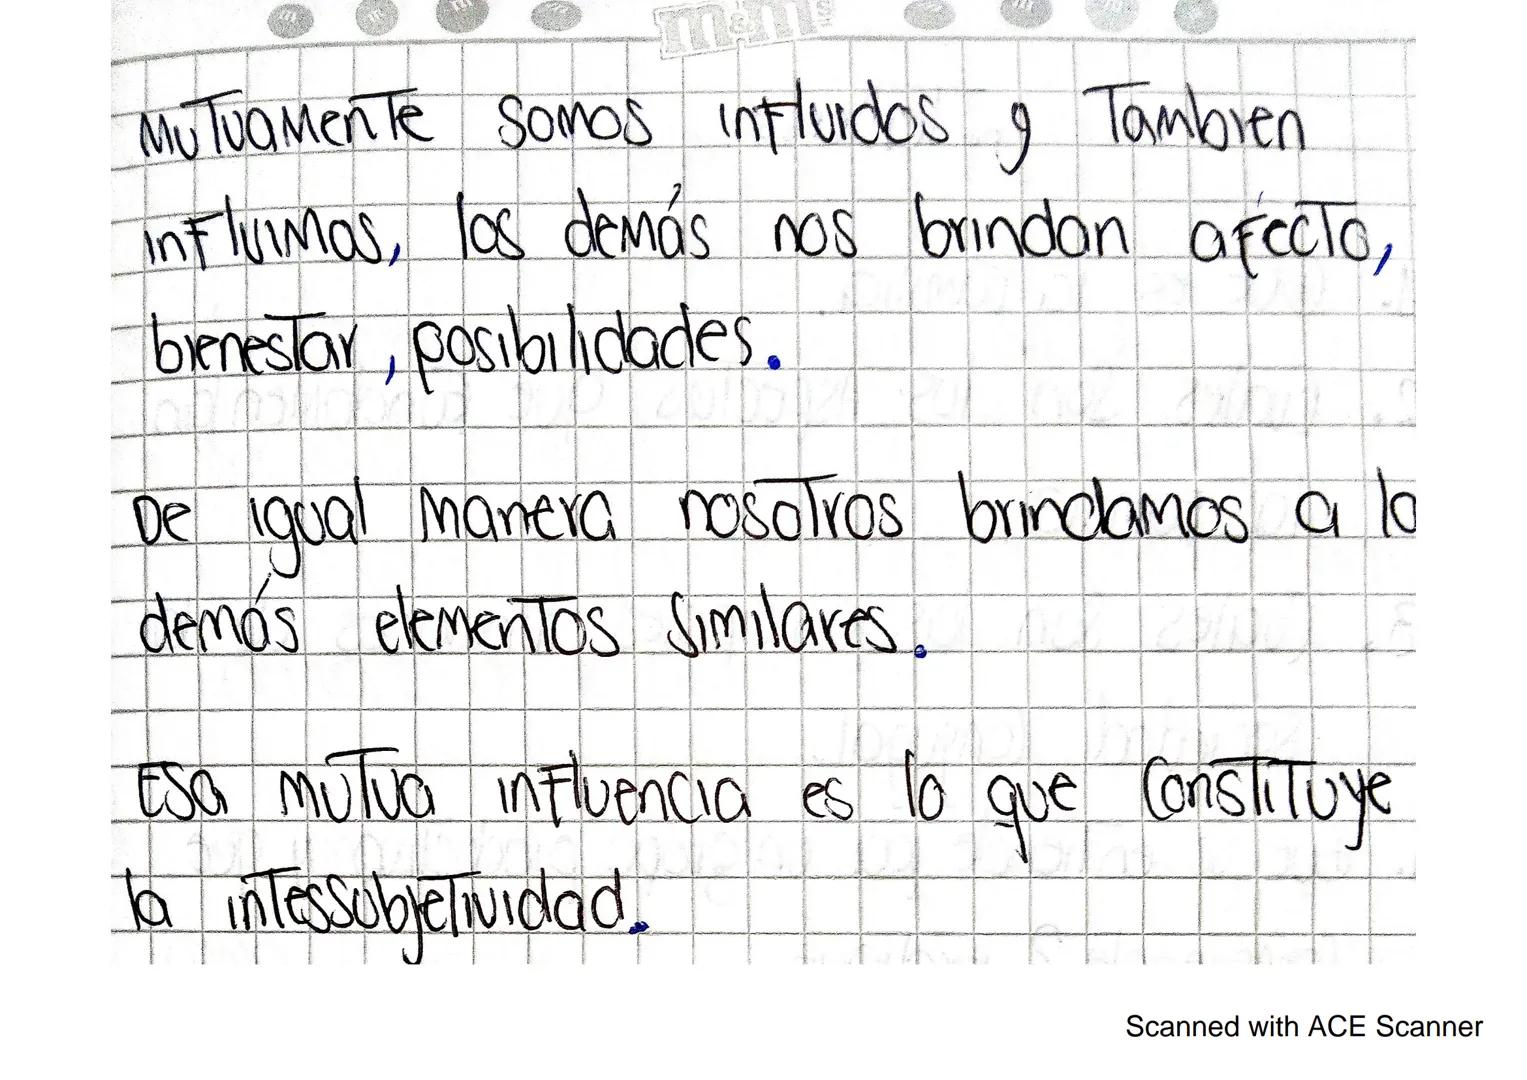 m&m's
Mutuamente somos influidos y Tambien
influimos, los demás nos brindan afecto,
bienestar, posibilidades.
De igual manera nosotros brindamos a lo
demás elementos similares.
Esa mutua influencia es lo que constituye
la intessubjetividad.
Scanned with ACE Scanner